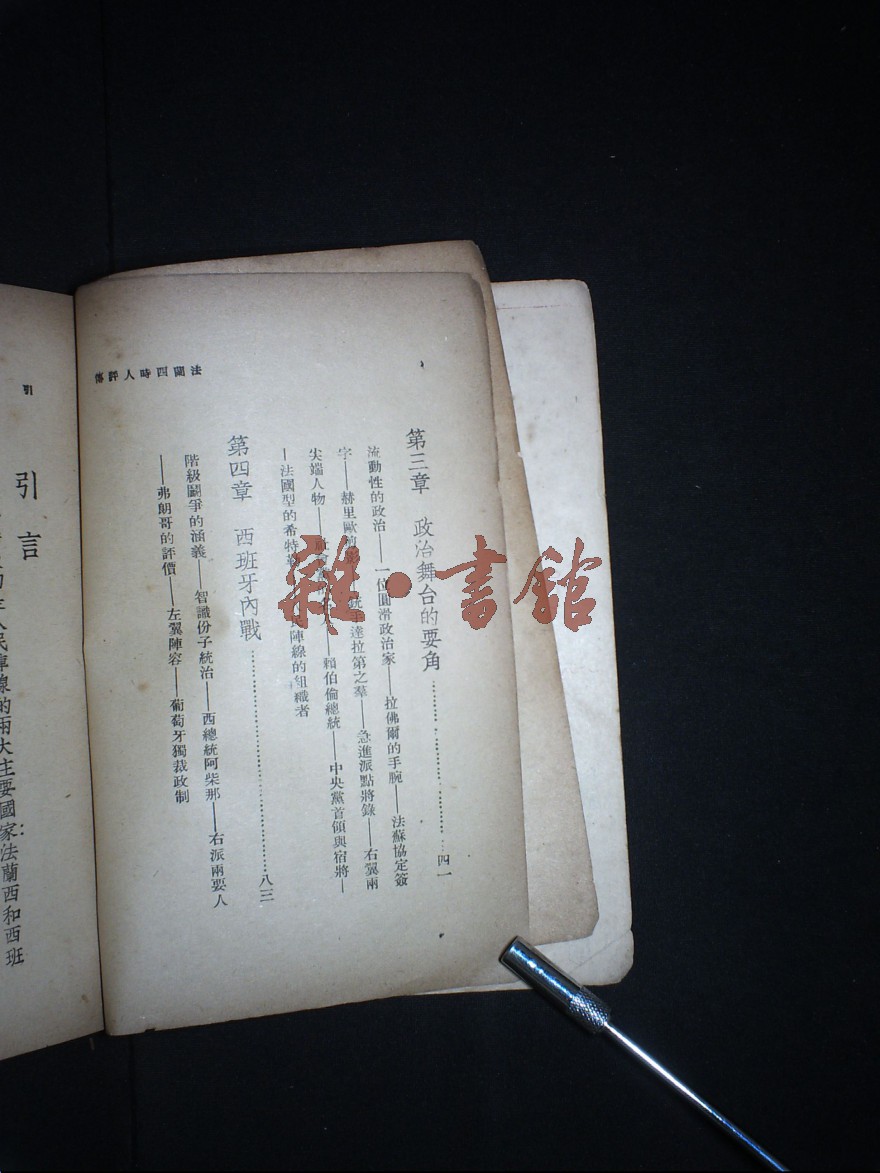 法國四時人評傳
第三章 政治舞台的要角……四一
流動性的政治——一位圓滑政治家——拉佛爾的手腕——法蘇協定簽
字——赫里歐 達拉第之羣——急進派點將錄——右翼兩
尖端人物—— 賴伯倫總統——中央黨首領與宿將—
—法國型的希特 陣線的組織者
第四章 西班牙內戰……八三
階級鬭爭的涵義——智識份子統治——西總統阿柴那——右派兩要人
——弗朗哥的評價——左翼陣容——葡萄牙獨裁政制
引
引言
人民陣線的兩大主要國家:法蘭西和西班
雜·書館